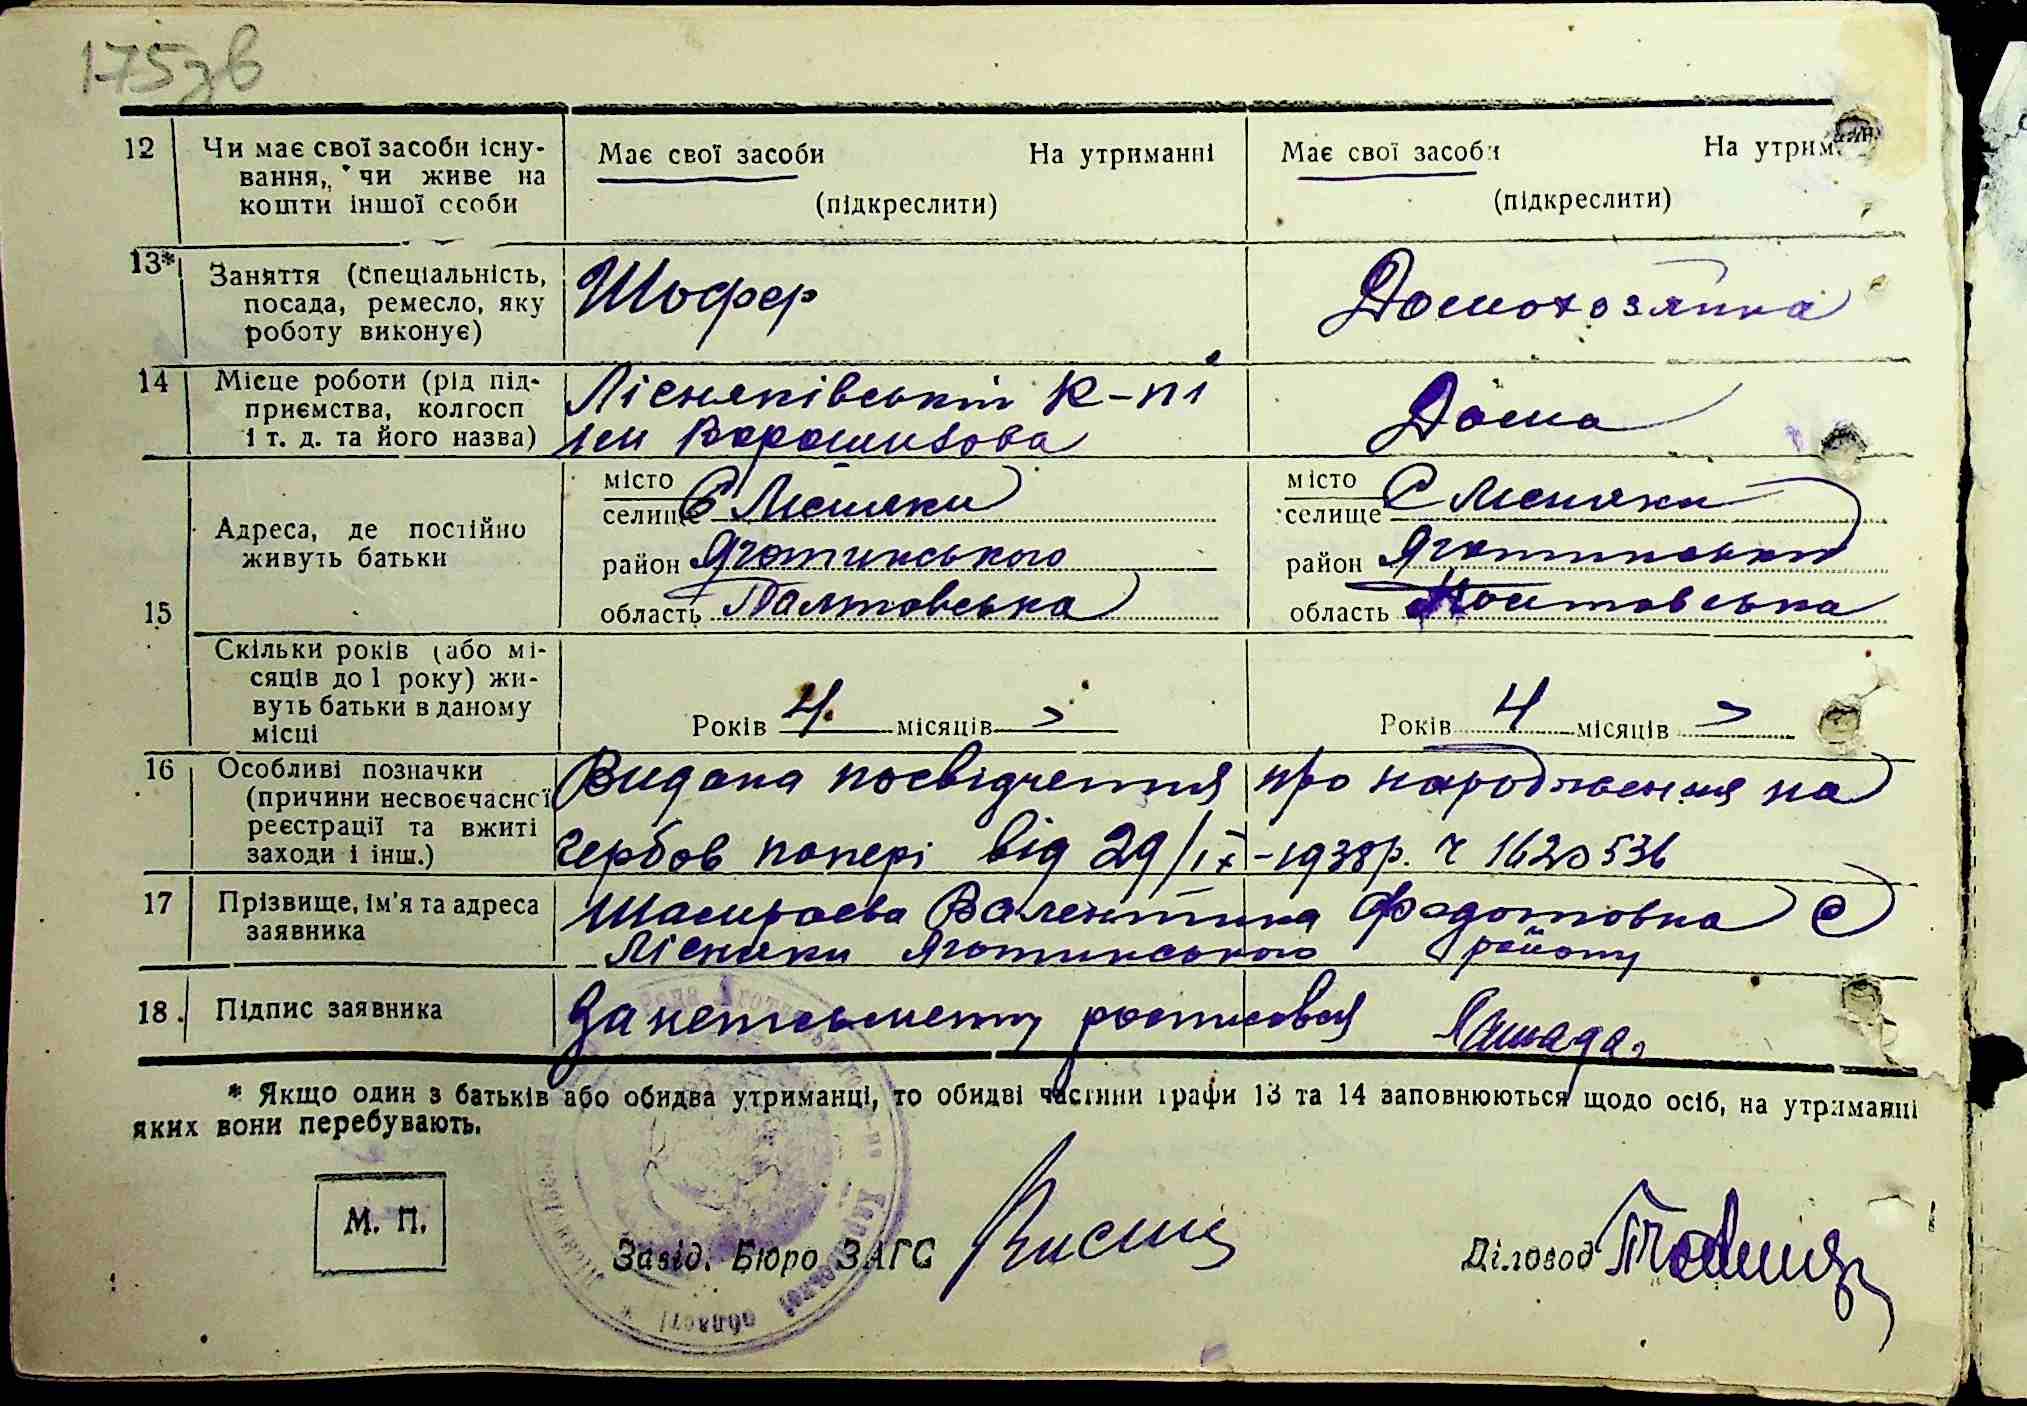 175зв
12 Чи має свої засоби існу-
вання, чи живе на
кошти іншої особи
Має свої засоби На утриманні
(підкреслити)
Має свої засоби На утрим
(підкреслити)
13* Заняття (спеціальність,
посада, ремесло, яку
роботу виконує)
Шофер
Домохозяика
14 Місце роботи (рід під-
приємства, колгосп
і т. д. та його назва)
Лісняківській к-пі
ім Ворошилова
Дома
15
Адреса, де постійно
живуть батьки
місто
селище С Лісняки
район Яготинського
область Полтовська
місто
селище С Лісняки
район Яготинський
область Полтовська
Скільки років (або мі-
сяців до 1 року) жи-
вуть батьки в даному
місці
Років 4 місяців
Років 4 місяців
16 Особливі позначки
(причини несвоєчасної
реєстрації та вжиті
заходи і інш.)
Видана посвідчення про народження на
гербов попері від 29/ІХ-1938р. ч 1620536
17 Прізвище, ім'я та адреса
заявника
Валентина Федотовна С
Лісняки Яготинського району
18. Підпис заявника
За неписьменну росписовся
* Якщо один з батьків або обидва утриманці, то обидві частини графи 13 та 14 заповнюються щодо осіб, на утриманні
яких вони перебувають.
М. П.
Завід. Бюро ЗАГС
Діловод